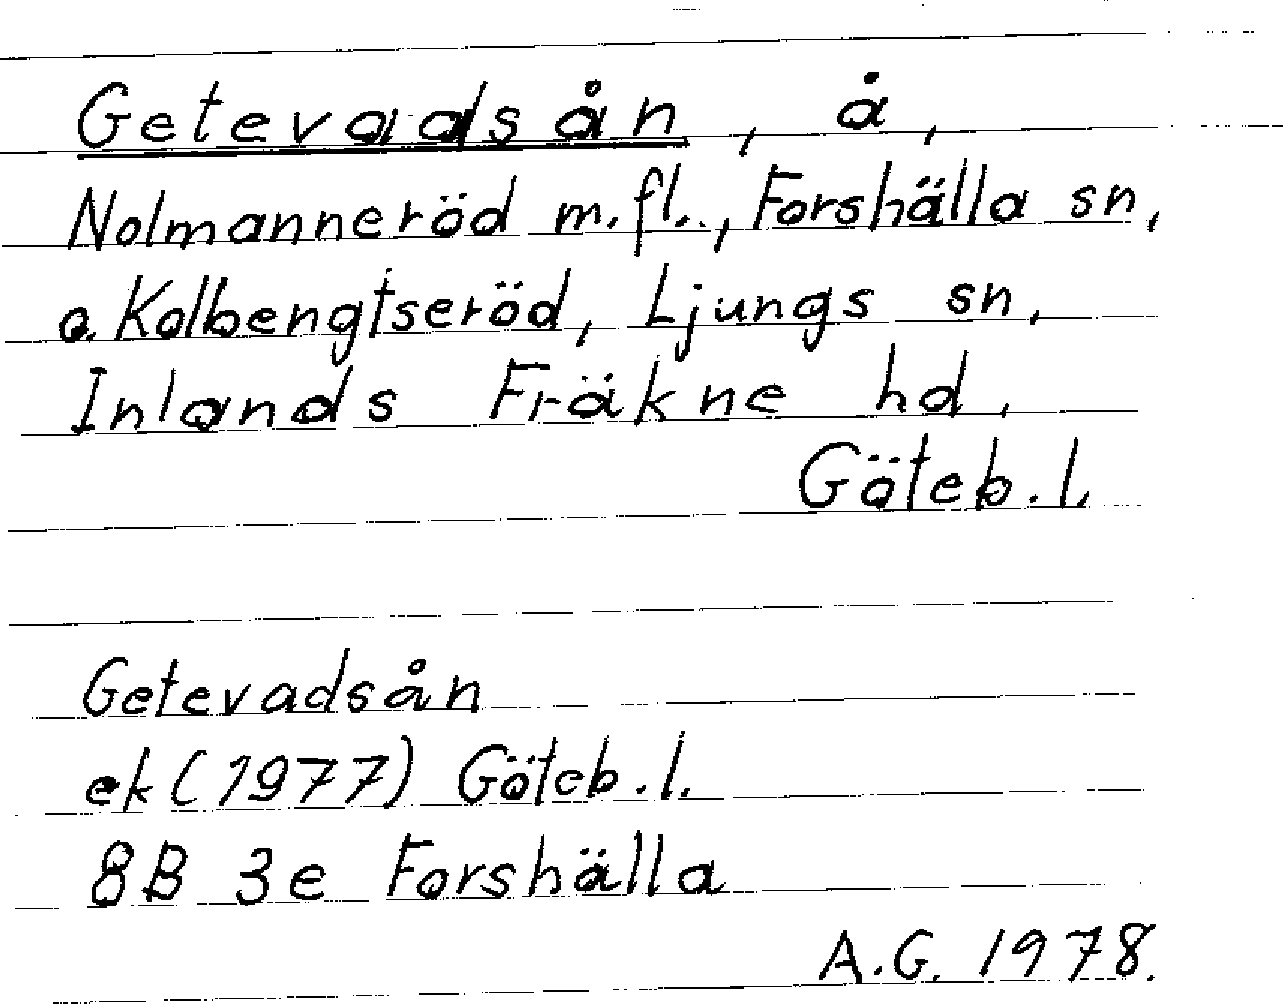 Getevadsån, å,
Nolmanneröd m.fl., Forshälla sn,
o. Kolbengtseröd, Ljungs sn,
Inlands Fräkne hd,
Göteb.l.
Getevadsån
ek (1977) Göteb.l.
8B 3e Forshälla
A.G. 1978.